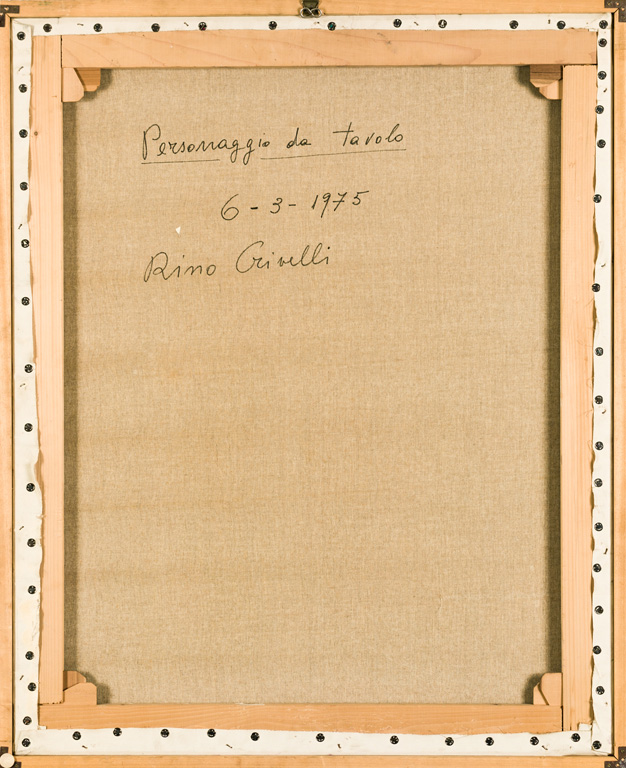 Personaggio da tavolo
6-3-1975
Rino Crivelli